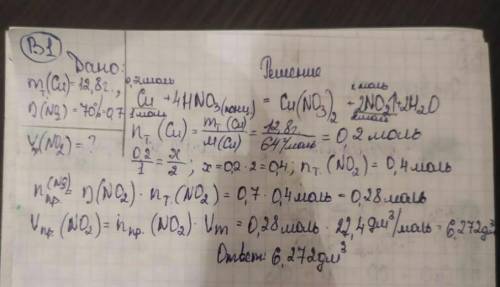 В1
Дано:
Решение
m_т(Cu)=12,8г
η(NO₂)=70%=0,7
V_пр(NO₂)=?
0,2моль x моль
Cu + 4HNO₃(конц) = Cu(NO₃)₂ + 2NO₂↑ + 2H₂O
1моль 2моль
n_т(Cu) = m_т(Cu)/M(Cu) = 12,8г/64г/моль = 0,2 моль
0,2/1 = x/2 ; x=0,2·2=0,4; n_т.(NO₂)=0,4моль
n_пр.(NO₂) = η(NO₂) · n_т.(NO₂) = 0,7 · 0,4моль = 0,28моль
V_пр.(NO₂) = n_пр.(NO₂) · V_m = 0,28моль · 22,4дм³/моль = 6,272дм³
Ответ: 6,272дм³